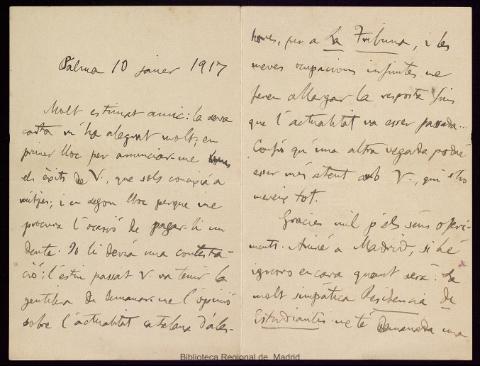 Palma 10 janer 1917
Molt estimat amic: la seva
carta m'ha alegrat molt; en
primer lloc per anunciar-me
els èxits de V., que sols coneixia a
mitjes; i en segon lloc perque me
procura l'ocasió de pagar-li un
deute. Jo li devia una contesta-
ció: l'estiu passat V. va tenir la
gentilesa de demanar-me l'opinió
sobre l'actualitat catalana d'ales-
hores, per a La Tribuna, i les
meves ocupacions infinites me
feren allargar la resposta fins
que l'actualitat va esser passada...
Confio que una altra vegada podré
esser més atent amb V., qui
mereix tot.
Gracies mil p'els seus oferi-
ments. Aniré a Madrid, si bé
ignoro encara quant serà. La
molt simpática Residencia de
Estudiantes me té demanada una
Biblioteca Regional de Madrid